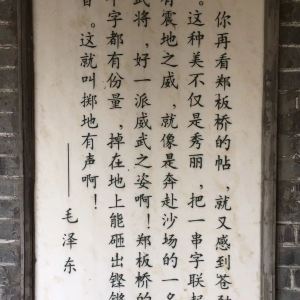 你再看郑板桥的帖,就又感到苍劲
。这种美不仅是秀丽,把一串字联起
有震地之威,就像是奔赴沙场的一名
武将,好一派威武之姿啊!郑板桥的
字都有份量,掉在地上能砸出铿锵
音。这就叫掷地有声啊!
——毛泽东